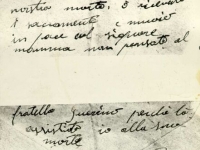 nostra morto, è ricevuto
i sacramenti e muorio
in pace col signore
mamma non pensate al
fratello guerino perchè lo
assistito io alla sua
morte